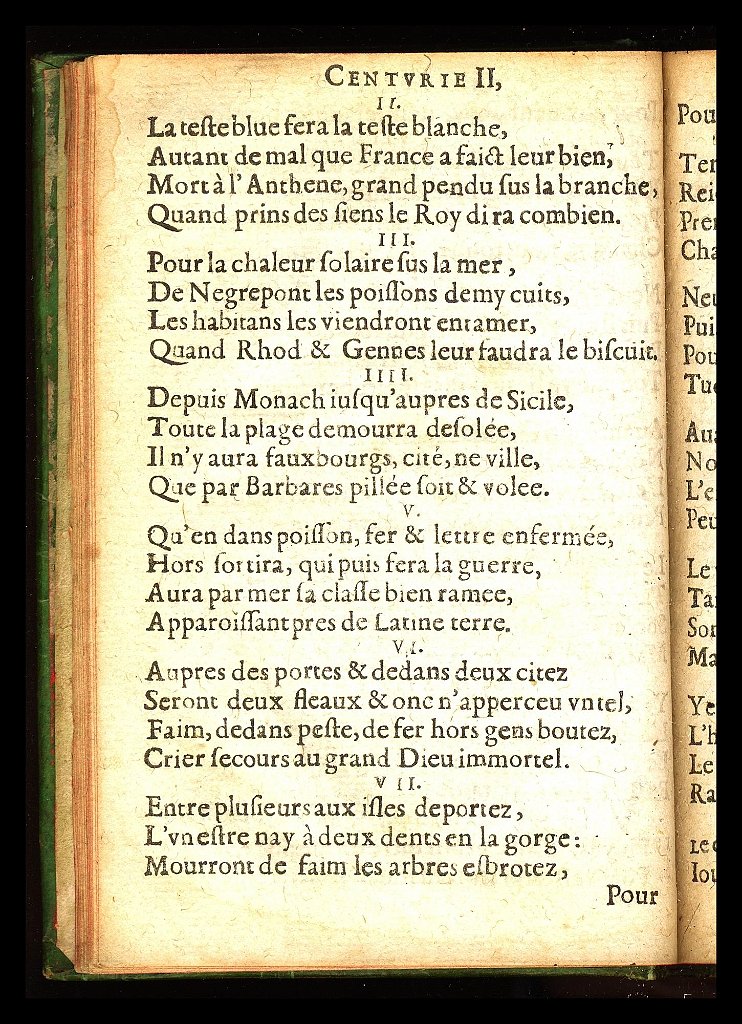 CENTVRIE II,
II.
La teſte blue fera la teſte blanche,
Autant de mal que France a faict leur bien,
Mort à l'Anthene, grand pendu ſus la branche,
Quand prins des ſiens le Roy dira combien.
III.
Pour la chaleur ſolaire ſus la mer,
De Negrepont les poiſſons demy cuits,
Les habitans les viendront entamer,
Quand Rhod & Gennes leur faudra le biſcuit.
IIII.
Depuis Monach iuſqu'aupres de Sicile,
Toute la plage demourra deſolée,
Il n'y aura fauxbourgs, cité, ne ville,
Que par Barbares pillée ſoit & volee.
V.
Qu'en dans poiſſon, fer & lettre enfermée,
Hors ſortira, qui puis fera la guerre,
Aura par mer ſa claſſe bien ramee,
Apparoiſſant pres de Latine terre.
VI.
Aupres des portes & dedans deux citez
Seront deux fleaux & onc n'apperceu vn tel,
Faim, dedans peſte, de fer hors gens boutez,
Crier ſecours au grand Dieu immortel.
VII.
Entre pluſieurs aux iſles deportez,
L'vn eſtre nay à deux dents en la gorge:
Mourront de faim les arbres eſbrotez,
Pour
Pou
Ter
Rei
Pre
Cha
Neu
Pui
Pou
Tue
Aua
No
L'e
Peu
Le
Ta
Sor
Ma
Ye
L'h
Le
Ra
Le
Iou